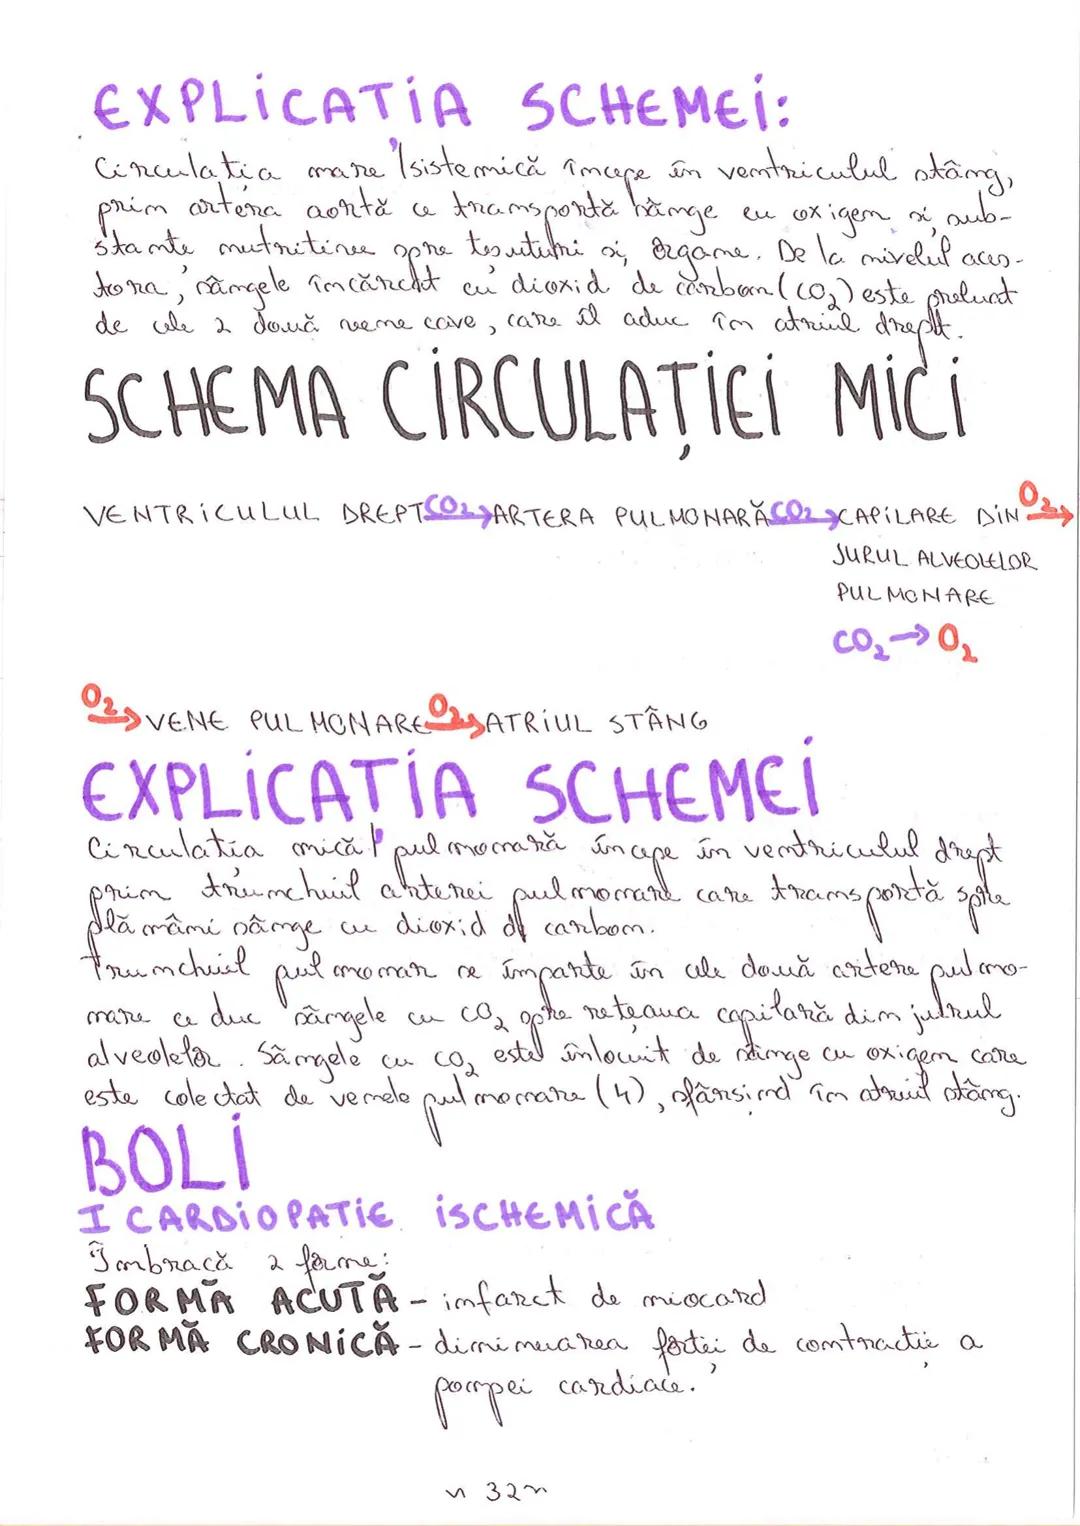 EXPLICATIA SCHEMEI:
Circulatia mare/sistemică începe în ventriculul stâng,
prin artera aortă ce transportă sânge cu oxigen și sub-
stante nutritive spre tesuturi și organe. De la nivelul aces-
tora, sângele încărcat cu dioxid de carbon (CO₂) este preluat
de cele 2 două vene cave, care îl aduc în atriul drept.
SCHEMA CIRCULAȚIEI MICI
VENTRICULUL DREPT CO₂→ ARTERA PULMONARĂ CO₂→ CAPILARE DIN O₂→
JURUL ALVEOLELOR
PULMONARE
CO₂→O₂
O₂→ VENE PULMONARE O₂→ ATRIUL STÂNG
EXPLICATIA SCHEMEI
Circulatia mică/pulmonară începe în ventriculul drept
prin trunchiul arterei pulmonare care transportă spre
plămâni sânge cu dioxid de carbon.
Trunchiul pulmonar se împarte în cele două artere pulmo-
nare ce duc sângele cu CO₂ spre rețeaua capilară din jurul
alveolelor. Sângele cu CO₂ este înlocuit de sânge cu oxigen care
este colectat de venele pulmonare (4), sfârsind în atriul stâng.
BOLI
I CARDIOPATIE ISCHEMICĂ
Îmbracă 2 forme:
FORMĂ ACUTĂ - infarct de miocard
FORMĂ CRONICĂ - diminuarea forței de contracție a
pompei cardiace.
~ 32 ~